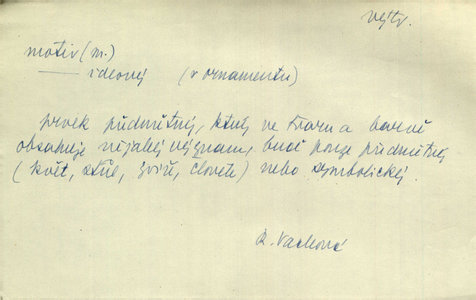 výtv.
motiv (m.)
ideový (v ornamentu)
prvek předmětný, který ve tvaru a barvě
obsahuje nějaký význam, buď pouze předmětný
(květ, zvíře, člověk) nebo symbolický.
R. Vacková